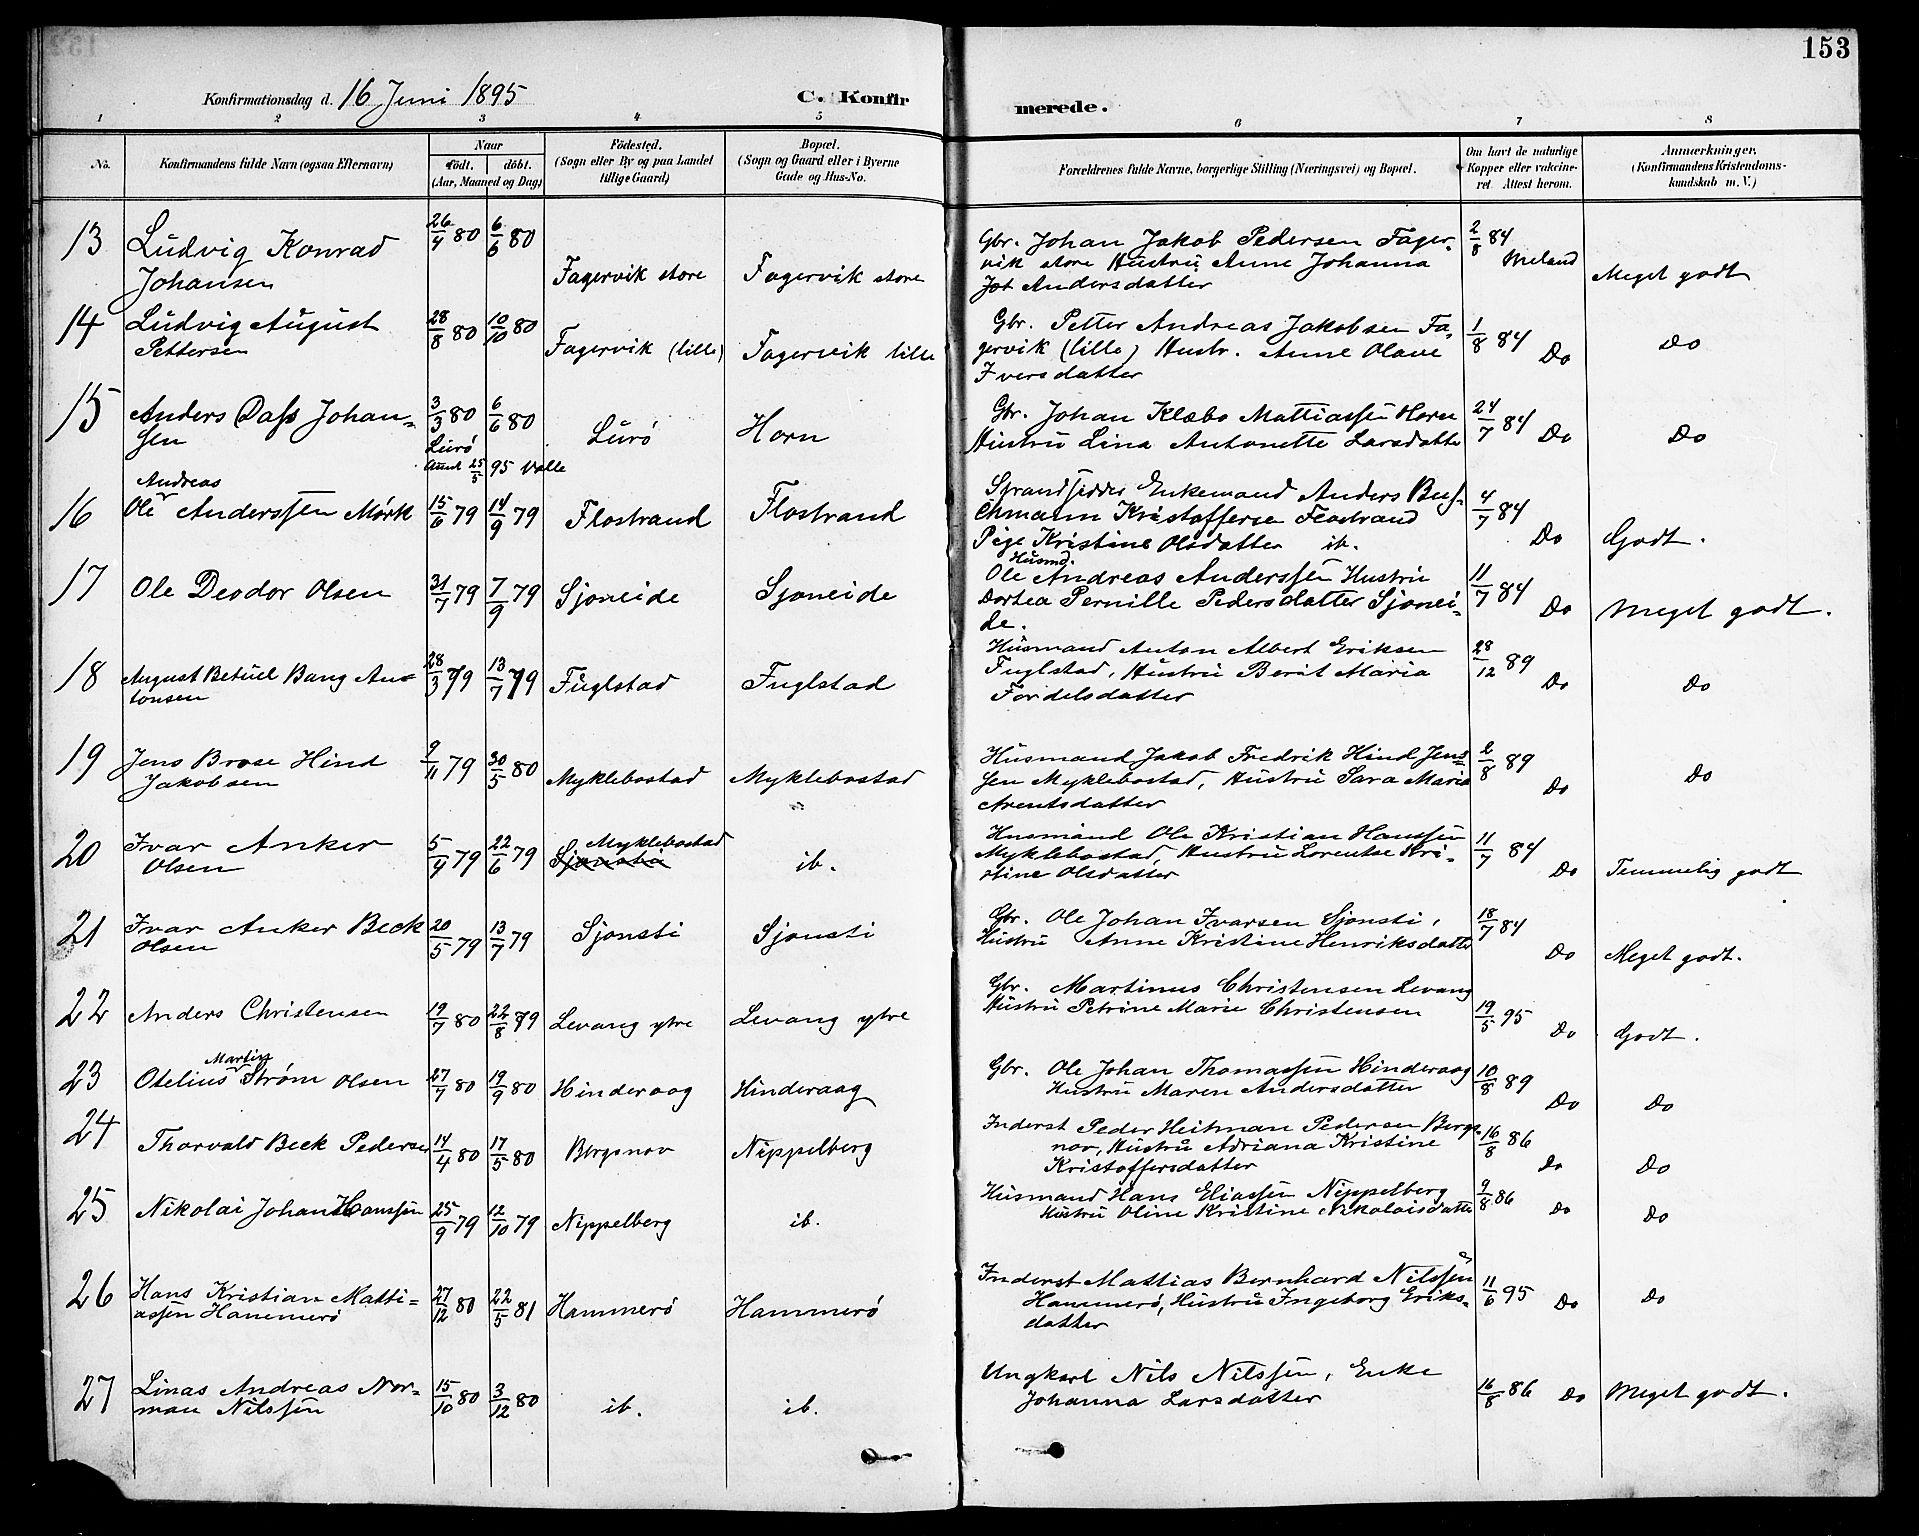 153
Konfirmationsdag d. 16 Juni 1895
C. Konfir
merede.
1 2 3 4 5 6 7 8
No. Konfirmandens fulde Navn (ogsaa Efternavn)
Naar
født. døbt.
(Aar, Maaned og Dag)
Födested.
(Sogn eller By og paa Landet
tillige Gaard)
Bopæl.
(Sogn og Gaard eller i Byerne
Gade og Hus-No.
Forældrenes fulde Navne, borgerlige Stilling (Næringsvei) og Bopæl.
Om havt de naturlige
Kopper eller vakcine-
ret. Attest herom.
Anmærkninger.
(Konfirmandens Kristendoms-
kundskab m. V.)
13 Ludvig Konrad
Johansen
26/4 80 6/6 80 Fagervik store Fagervik store
Gbr. Johan Jakob Pedersen Fager-
vik store Hustru Anne Johanna
Andersdatter
2/8 84 Meland Meget godt
14 Ludvig August
Pettersen
28/8 80 10/10 80 Fagervik (lille) Fagervik lille
Gbr. Petter Andreas Jakobsen Fa-
gervik (lille) Hustr. Anne Olave
Iversdatter
1/8 84 Do Do
15 Anders Dass Johan-
sen
3/3 80 6/6 80 Lurö Horn
Lurö
25/5 95 Valle
Gbr. Johan Klæbo Mattiassen Horn
Hustru Lina Antonette Larsdatter
24/7 84 Do Do
Andreas
16 Ole Anderssen Mørk 15/6 79 14/9 79 Flostrand Flostrand
Strandsidder Enkemand Anders Bus-
chmann Kristoffersen Flostrand
Pige Kristine Olsdatter ib.
4/7 84 Do Godt.
17 Ole Deodor Olsen 31/7 79 7/9 79 Sjoneide Sjoneide
Husmd.
Ole Andreas Anderssen Hustru
Dortea Pernille Pedersdatter Sjonei-
de.
11/7 84 Do Meget godt.
18 August Betuel Bang An-
tonsen
28/3 79 13/7 79 Fuglstad Fuglstad
Husmand Anton Albert Eriksen
Fuglstad, Hustru Berit Maria
Fordelsdatter
28/12 89 Do Do
19 Jens Brose Hind
Jakobsen
9/11 79 30/5 80 Myklebostad Myklebostad
Husmand Jakob Fredrik Hind Jens-
sen Myklebostad, Hustru Sara Maria
Arentsdatter
2/8 89 Do Do
20 Ivar Anker
Olsen
5/4 79 22/6 79 Myklebostad
Sjonsti ib.
Husmand Ole Kristian Hanssen
Myklebostad, Hustru Lorentse Kri-
stine Olsdatter
11/7 84 Do Temmelig godt
21 Ivar Anker Beck
Olsen
20/5 79 13/7 79 Sjonsti Sjonsti
Gbr. Ole Johan Ivarsen Sjonsti,
Hustru Anne Kristine Henriksdatter
18/7 84 Do Meget godt.
22 Anders Christensen 19/7 80 22/8 79 Levang ytre Levang ytre
Gbr. Martinus Christensen Levang
Hustru Petrine Marie Christensen
19/5 95 Do Godt.
Martin
23 Otelius Strøm Olsen 27/7 80 19/9 80 Hinderaag Hinderaag
Gbr. Ole Johan Thomassen Hinderaag
Hustru Maren Andersdatter
10/8 89 Do Do
24 Thorvald Beck Pedersen 14/4 80 17/5 80 Bergsnov Nippelberg
Inderst Peder Heitman Pedersen Bergs-
nov, Hustru Adriana Kristine
Kristoffersdatter
16/8 86 Do Do
25 Nikolai Johan Hanssen 25/9 79 12/10 79 Nippelberg ib.
Husmand Hans Eliassen Nippelberg
Hustru Oline Kristine Nikolaisdatter
9/8 86 Do Do
26 Hans Kristian Matti-
assen Hammerö
27/12 80 22/5 81 Hammerö Hammerö
Inderst Mattias Bernhard Nilssen
Hammerö, Hustru Ingeborg Eriks-
datter
11/6 95 Do Do
27 Linas Andreas Nor-
man Nilssen
15/10 80 3/12 80 ib. ib.
Ungkarl Nils Nilssen, Enke
Johanna Larsdatter
16/8 86 Do Meget godt.